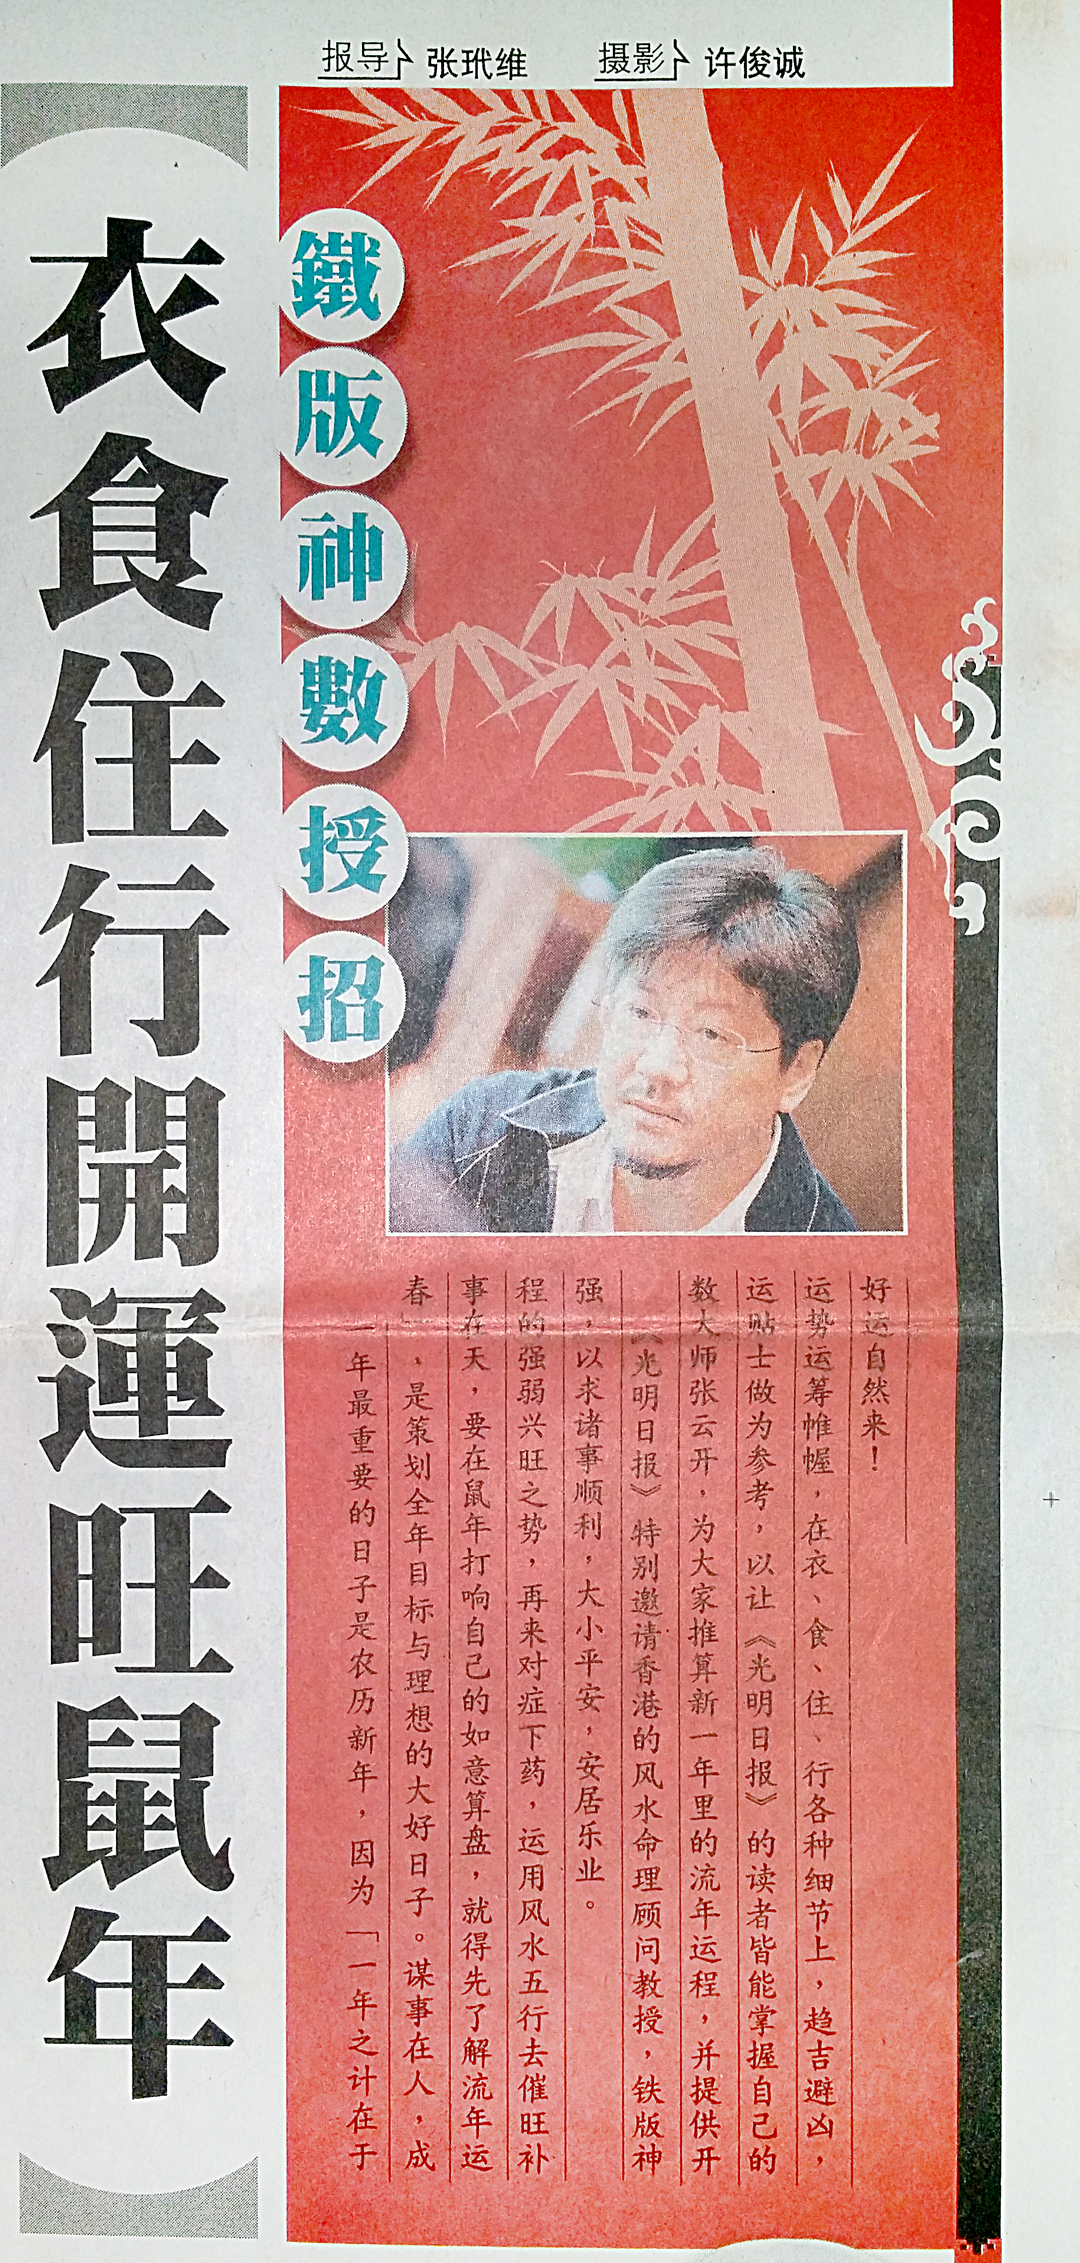 报导 张玳维 摄影 许俊诚
衣食住行開運旺鼠年
鐵版神數授招
一年最重要的日子是农历新年，因为「一年之计在于
春」，是策划全年目标与理想的大好日子。谋事在人，成
事在天，要在鼠年打响自己的如意算盘，就得先了解流年运
程的强弱兴旺之势，再来对症下药，运用风水五行去催旺补
强，以求诸事顺利，大小平安，安居乐业。
《光明日报》特别邀请香港的风水命理顾问教授，铁版神
数大师张云开，为大家推算新一年里的流年运程，并提供开
运贴士做为参考，以让《光明日报》的读者皆能掌握自己的
运势运筹帷幄，在衣、食、住、行各种细节上，趋吉避凶，
好运自然来！